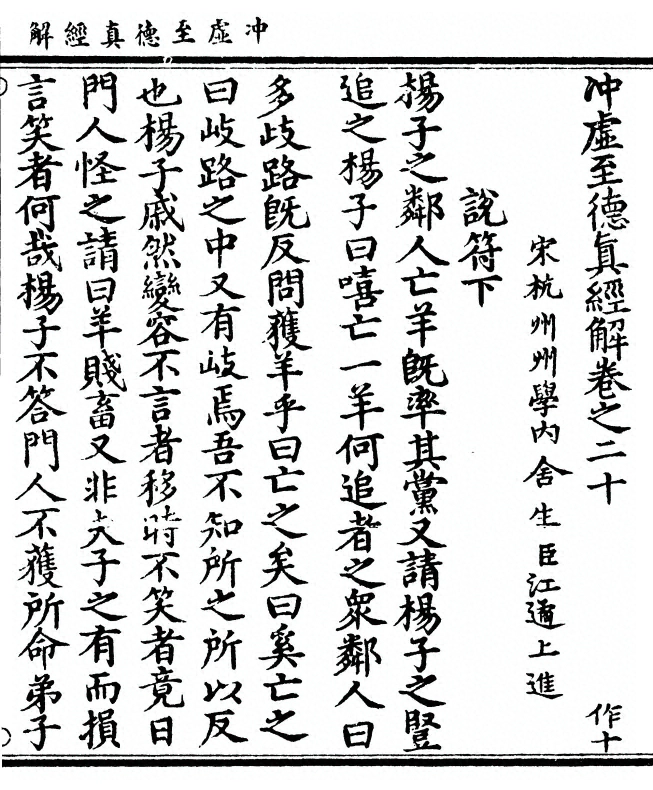 冲虛至德真經解
冲虛至德真經解卷之二十
作十
宋杭州州學內舍生臣江遹上進
說符下
楊子之鄰人亡羊旣率其黨又請楊子之豎
追之楊子曰嘻亡一羊何追者之衆鄰人曰
多歧路旣反問獲羊乎曰亡之矣曰奚亡之
曰歧路之中又有歧焉吾不知所之所以反
也楊子戚然變容不言者移時不笑者竟日
門人怪之請曰羊賤畜又非夫子之有而損
言笑者何哉楊子不答門人不獲所命弟子